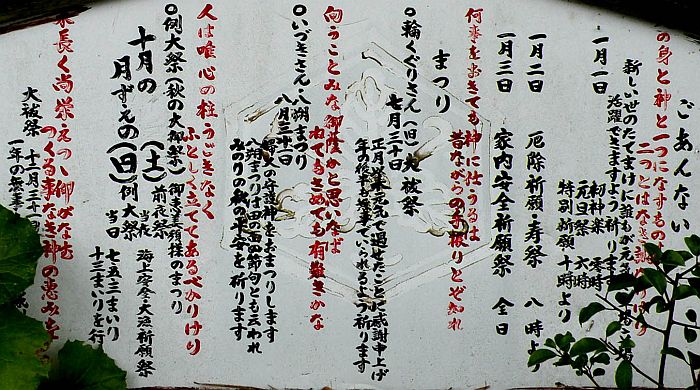 ごあんない
の身と神と一つになすもの
二つとはなき
新しい世のたてまけに誰もが元
活躍できますよう祈ります
一月一日
初神楽 零時
元旦祭 六時
特別祈願 十時より
一月二日 厄除祈願・寿祭 八時よ
一月三日 家内安全祈願祭 全日
何事をおきても神に仕うるは
昔ながらの手振りとぞ知れ
まつり
◎輪くぐりさん(旧)大祓祭
七月三十日
正月以来元気で過せたことに感謝申上げ
年の後半も無事でいられるよう祈ります
向うことみな御蔭かと思いなば
ねてもさめても有難きかな
◎いづきさん・八朔まつり
八月三十一日
婦人の守護神をおまつりします
八朔まつりは田の面の節句とも云われ
みのりの秋の平安を祈ります
人は唯心の柱うごきなく
ふとしく立ててあるべかりけり
◎例大祭(秋の大御祭)
御表筒男様のまつり
十月の(土)前夜祭 当夜
海上安全・大漁祈願祭
月ずえの(日)例大祭 当日
七五三まいり
十三まいりを行
長く尚栄えつつ御がな
つくる事なき神の恵みを
大祓祭 十二月三十一日
一年の無事